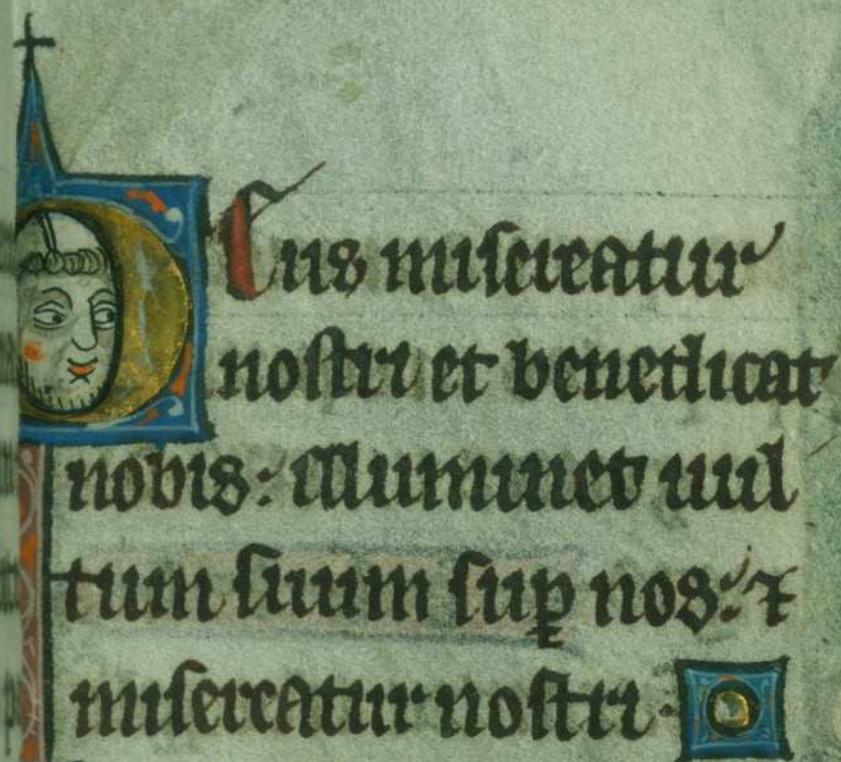 Deus misereatur
nostri et benedicat
nobis: illuminet uul
tum suum suꝑ nos: ⁊
misereatur nostri.